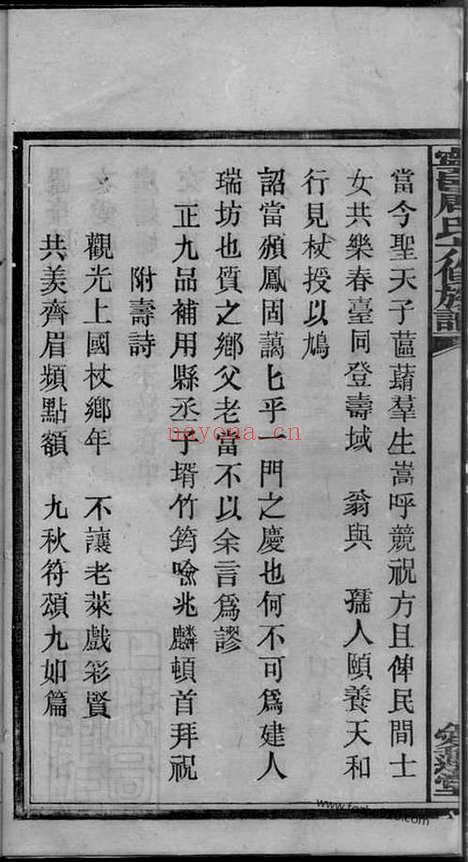 當今聖天子蘊藉羣生嵩呼競祝方且俾民間士
女共樂春臺同登壽域 翁與 孺人頤養天和
行見杖授以鳩
詔當頒鳳固藹匕乎一門之慶也何不可為建人
瑞坊也質之鄉父老當不以余言為謬
正九品補用縣丞子壻竹筠喻兆麟頓首拜祝
附壽詩
觀光上國杖鄉年 不讓老萊戲彩賢
共羨齊眉頻點額 九秋符頌九如篇
nayona.cn